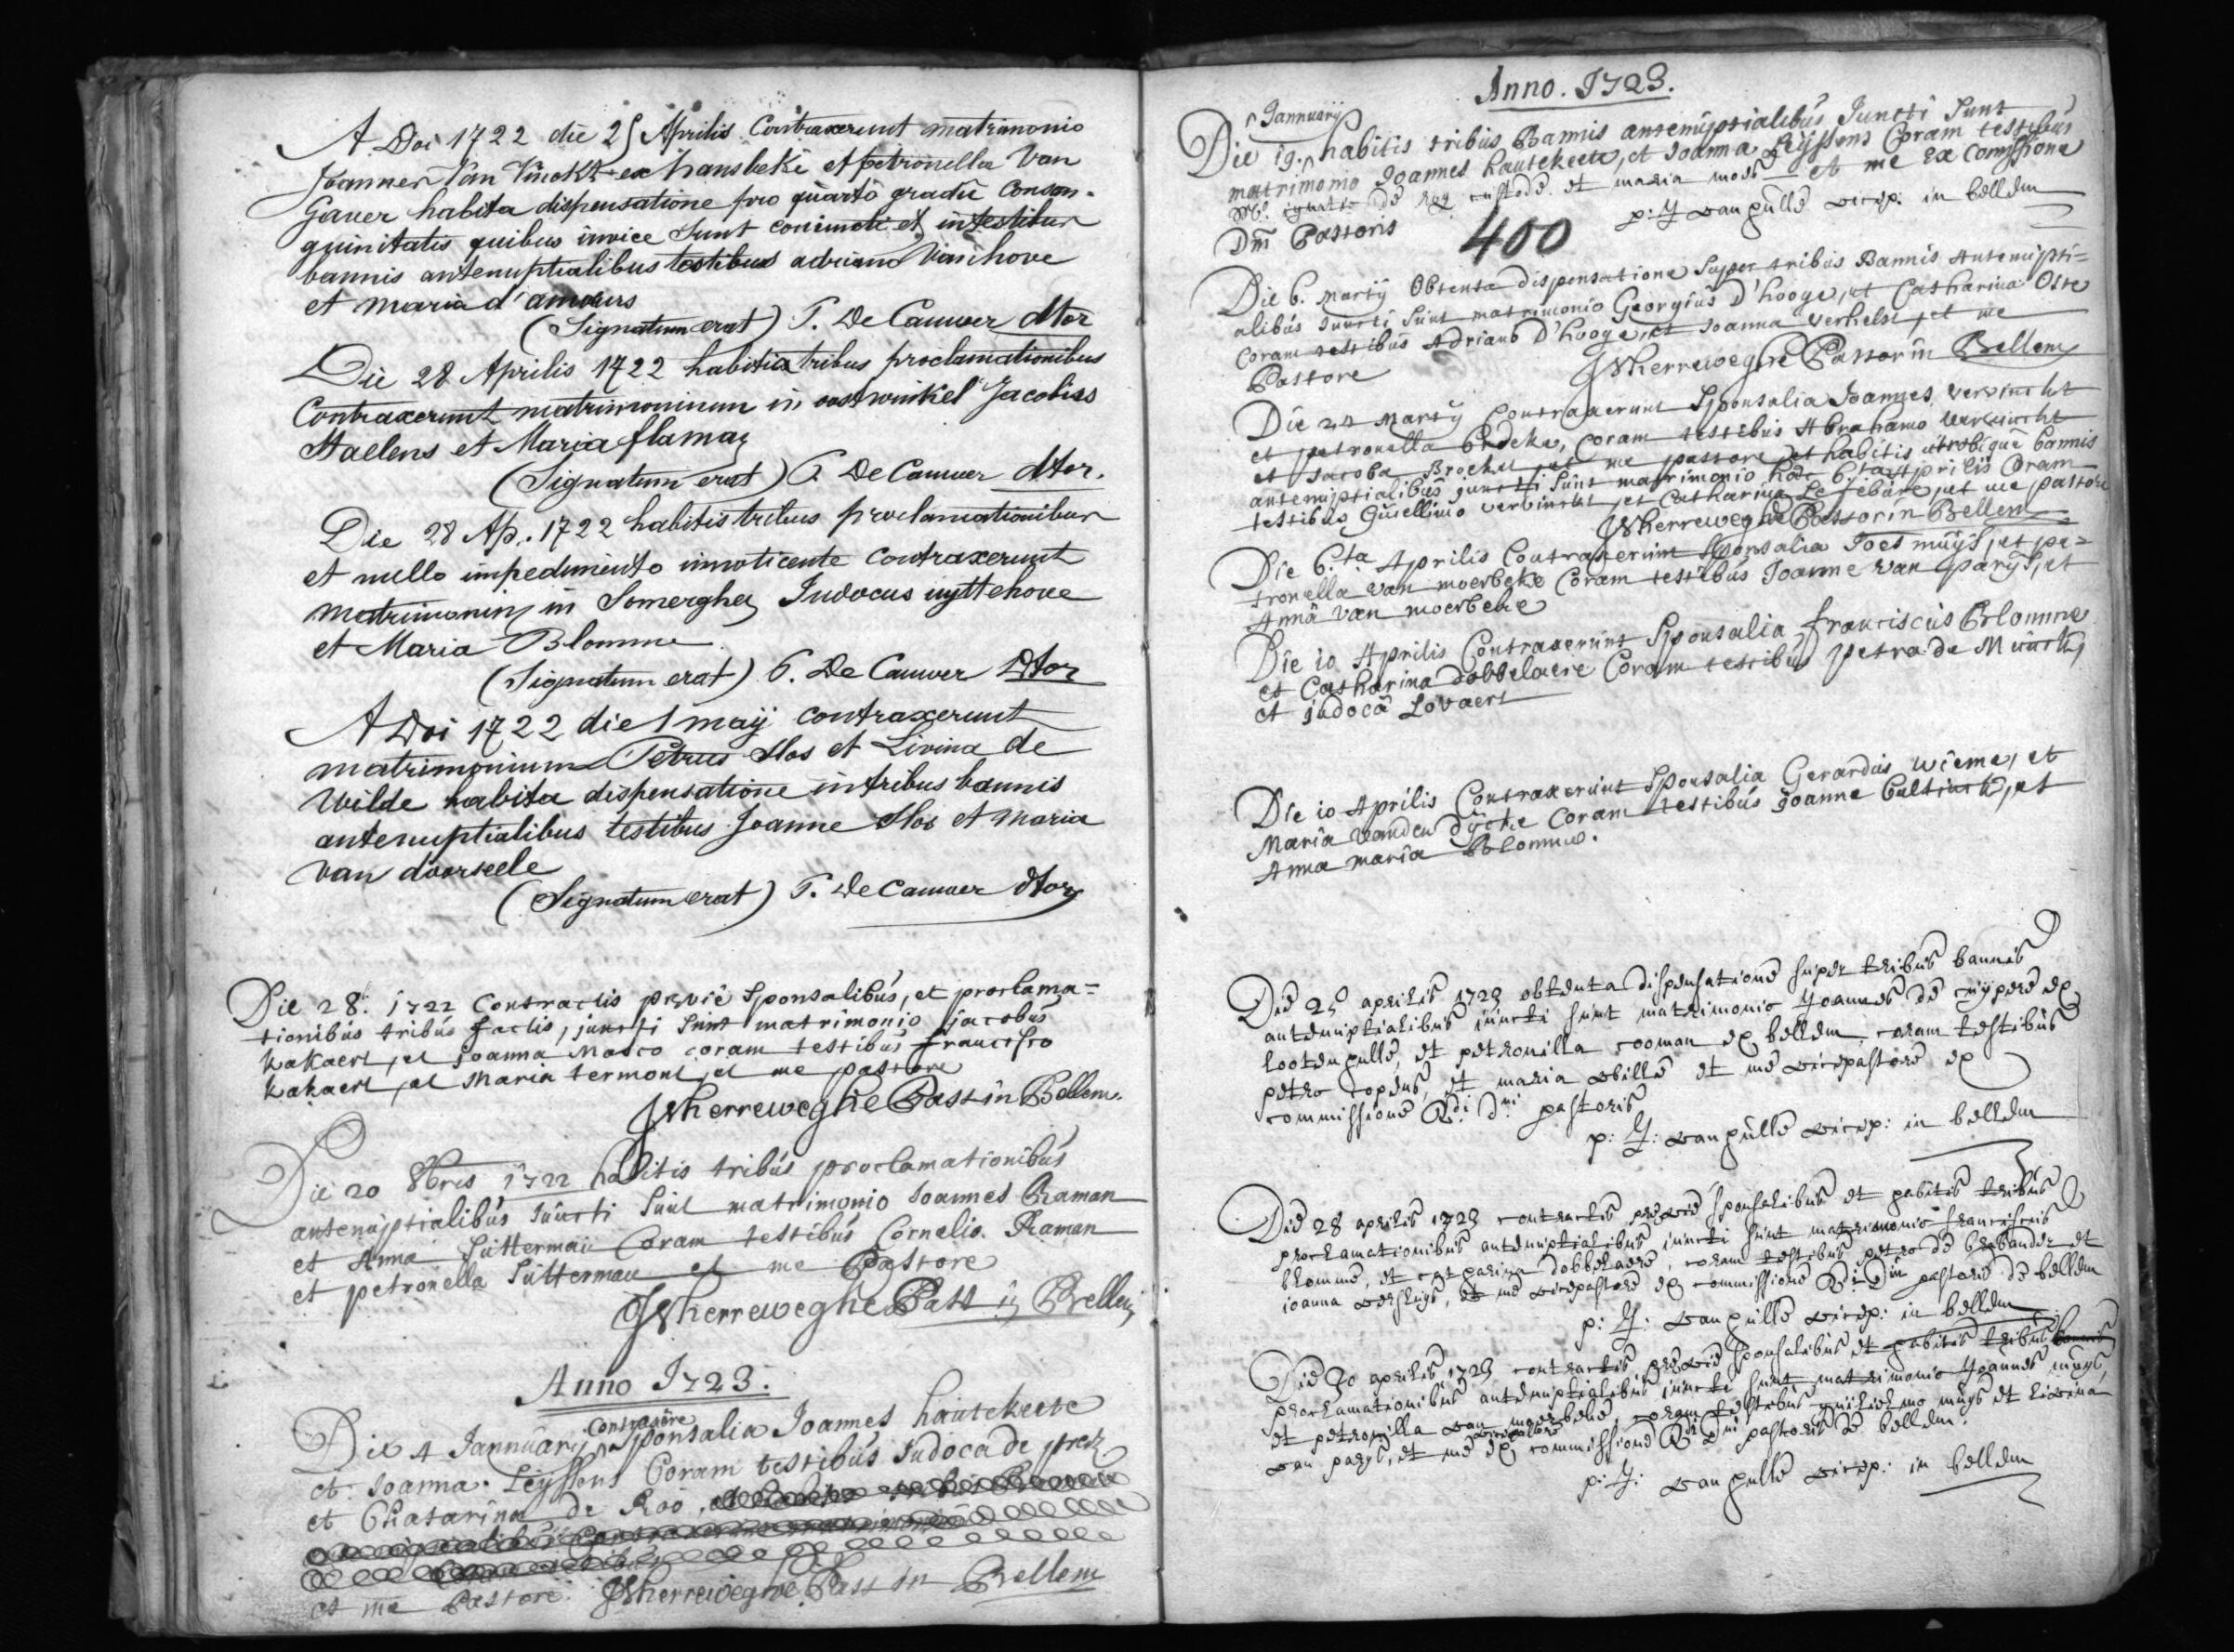 A Doi 1722 die 25 Aprilis Contraxerunt matrimonio
Joannes Van Vinckt ex hansbeke et petronella Van
Gaver habita dispensatione pro quarto gradu Consan-
guinitatis quibus invice Sunt coniuncti et in testibus
bannis antenuptialibus testibus adriano Van hove
et Maria d'amours
(Signatum erat) P. De Cauwer dstor
Die 28 Aprilis 1722 habitis tribus proclamationibus
Contraxerunt matrimonium in oostwinkel Jacobus
Staelens et Maria flamaz
(Signatum erat) P. De Cauwer dstor.
Die 28 Ap. 1722 habitis tribus proclamationibus
et nullo impedimento innoticente contraxerunt
matrimonium in Somerghem Judocus uyttehove
et Maria Blomme
(Signatum erat) P. De Cauwer Dstor
A Doi 1722 die 1 maij contraxerunt
matrimonium Petrus Slos et Livina de
Wilde habita dispensatione in tribus bannis
antenuptialibus testibus Joanne Slos et Maria
van doorseele
(Signatum erat) P. De Cauwer dstor
Die 28. 1722 Contractis previe Sponsalibus, et proclama=
tionibus tribus factis, juncti Sunt matrimonio jacobus
kakaert, et joanna Masco coram testibus Francisco
kakaert, et Maria termont et me pastore
JVherreweghe Past in Bellem.
Die 20 8bris 1722 habitis tribus proclamationibus
antenuptialibus Juncti Sunt matrimonio Joannes Raman
et Anna Sutterman Coram testibus Cornelio Raman
et petronella Sutterman et me Pastore
JVherreweghe Past in Bellem
Anno 1723.
Contraxere
Die 4 Jannuarij Sponsalia Joannes hautekeete
et Joanna Leyssens Coram testibus Judoca de
et Chatarina de Roo
et me Pastore JVherreweghe Past in Bellem
Anno. 1723.
Jannuarij
Die 19. habitis tribus Bannis antenuptialibus Juncti Sunt
matrimonio Joannes hautekeete, et Joanna Leyssens Coram testibus
de roo custode et maria et me Ex Comissione
Dni Pastoris
p: J van hulle vicep: in bellem
400
Die 6. Martij Obtenta dispensatione Super tribus Bannis Antenupti=
alibus Juncti Sunt matrimonio Georgius D'hooge, et Catharina Oste
Coram testibus Adriano D'hooge, et Joanna Verhelst, et me
Pastore JVherreweghe Pastor in Bellem
Die 24 Martij Contraxerunt Sponsalia Joannes Vervincht
et petronella Credeke, Coram testibus Abrahamo Vervincht
et Jacoba Brocket, et me pastore, et habitis utrobique bannis
antenuptialibus juncti Sunt matrimonio hac 6.ta Aprilis Coram
testibus Guillimo Vervincht, et Catharina Lefebure, et me pastore
JVherreweghe Pastor in Bellem
Die 6.ta Aprilis Contraxerunt Sponsalia Joes muys, et pe=
tronella van moerbeke Coram testibus Joanne van parys, et
Anna van moerbeke
Die 10 Aprilis Contraxerunt Sponsalia, franciscus Blomme
et Catharina dobbelaere Coram testibus petro de Munck,
et judoca Lovaert
Die 10 Aprilis Contraxerunt Sponsalia Gerardus Wieme, et
Maria Vanden dijcke Coram testibus Joanne Bultinck, et
Anna maria Blomme.
Die 25 aprilis 1723 obtenta dispensatione super tribus bannis
antenuptialibus iuncti sunt matrimonio Joannes de cuypere ex
lootenhulle, et petronilla cooman ex bellem, coram testibus
petro copens, et maria wille et me vicepastore ex
commissione Rdi dni pastoris
p: J: van hulle vicep: in bellem
Die 28 aprilis 1723 contractis previe sponsalibus et habitis tribus
proclamationibus antenuptialibus iuncti sunt matrimonio franciscus
blomme, et catharina dobbelaere, coram testibus petro de brabander et
ioanna versluys, et me vicepastore ex commissione Rdi Dni pastoris de bellem
p: J: van hulle vicep: in bellem
Die 30 aprilis 1723 contractis previe sponsalibus et habitis tribus bannis
proclamationibus antenuptialibus iuncti sunt matrimonio Joannes muys,
et petronilla van moerbeke, coram testibus guilielmo muys et livina
vicepastore
van parys, et me ex commissione Rdi Dni pastoris de bellem.
p: J: van hulle vicep: in bellem